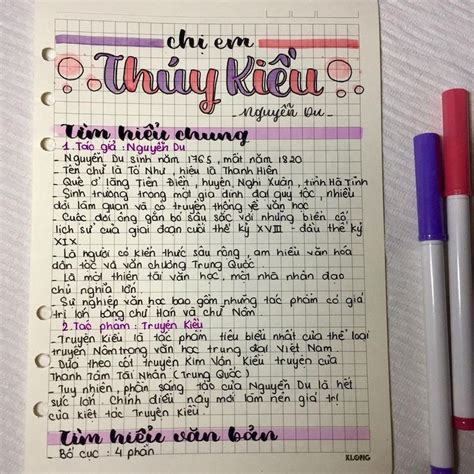 chị em
Thúy Kiều
_ Nguyễn Du _
Tìm hiểu chung
1. Tác giả : Nguyễn Du
_ Nguyễn Du sinh năm 1765, mất năm 1820
_ Tên chữ là Tố Như, hiệu là Thanh Hiên
_ Quê ở làng Tiên Điền, huyện Nghi Xuân, tỉnh Hà Tĩnh
_ Sinh trưởng trong một gia đình đại quý tộc, nhiều
đời làm quan và có truyền thống về văn học
_ Cuộc đời ông gắn bó sâu sắc với những biến cố
lịch sử của giai đoạn cuối thế kỷ XVIII - đầu thế kỷ
XIX
_ Là người có kiến thức sâu rộng, am hiểu văn hóa
dân tộc và văn chương Trung Quốc
_ Là một thiên tài văn học, một nhà nhân đạo
chủ nghĩa lớn.
_ Sự nghiệp văn học bao gồm những tác phẩm có giá
trị lớn bằng chữ Hán và chữ Nôm.
2. Tác phẩm : Truyện Kiều
_ Truyện Kiều là tác phẩm tiêu biểu nhất của thể loại
truyện Nôm trong văn học trung đại Việt Nam.
_ Dựa theo cốt truyện Kim Vân Kiều truyện của
Thanh Tâm Tài Nhân (Trung Quốc)
_ Tuy nhiên, phần sáng tạo của Nguyễn Du là hết
sức lớn. Chính điều này mới làm nên giá trị
của kiệt tác Truyện Kiều.
Tìm hiểu văn bản
_ Bố cục : 4 phần
KLONG